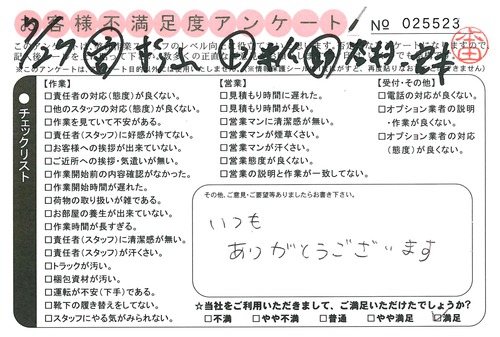 お客様不満足度アンケート
No 025523
チェックリスト
【作業】
□責任者の対応(態度)が良くない。
□他のスタッフの対応(態度)が良くない。
□作業を見ていて不安がある。
□責任者(スタッフ)に好感が持てない。
□お客様への挨拶が出来ていない。
□ご近所への挨拶・気遣いが無い。
□作業開始前の内容確認がなかった。
□作業開始時間が遅れた。
□荷物の取り扱いが雑である。
□お部屋の養生が出来ていない。
□作業時間が長すぎる。
□責任者(スタッフ)に清潔感が無い。
□責任者(スタッフ)が汗くさい。
□トラックが汚い。
□梱包資材が汚い。
□運転が不安(下手)である。
□靴下の履き替えをしてない。
□スタッフにやる気がみられない。
【営業】
□見積もり時間に遅れた。
□見積もり時間が長い。
□営業マンに清潔感が無い。
□営業マンが煙草くさい。
□営業マンが汗くさい。
□営業態度が良くない。
□営業の説明と作業が一致してない。
【受付・その他】
□電話の対応が良くない。
□オプション業者の説明
・作業が良くない。
□オプション業者の対応
(態度)が良くない。
その他、ご意見・ご要望等ありましたらお書き下さい。
いつも
ありがとうございます
☆当社をご利用いただきまして、ご満足いただけたでしょうか?
□不満 □やや不満 □普通 □やや満足 □満足